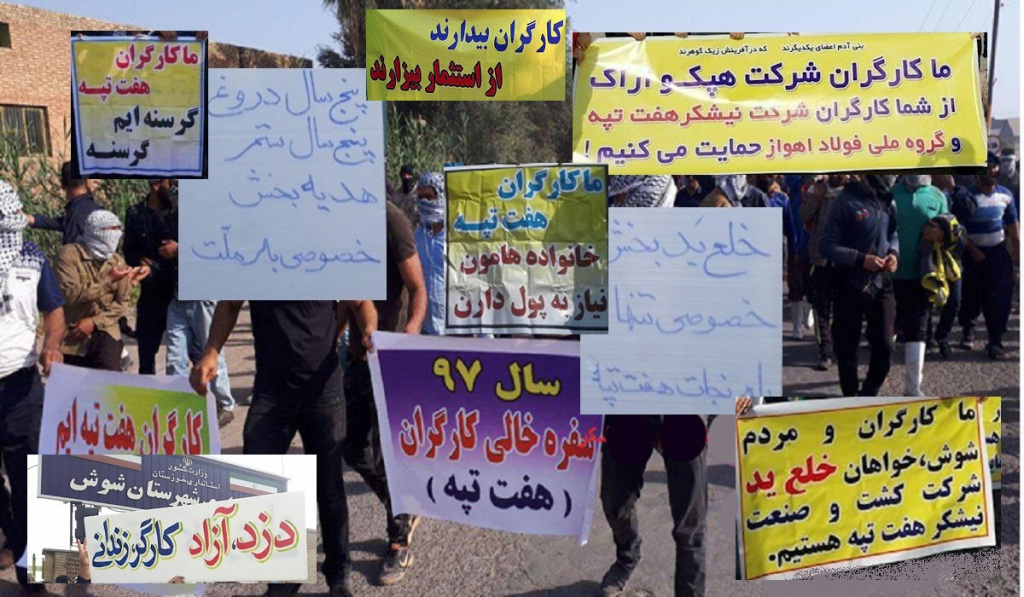 ما کارگران
هفت تپه
گرسنه ایم
گرسنه
پنج سال دروغ
پنج سال ستم
هدیه بخش
خصوصی به ملت
کارگران بیدارند
از استثمار بیزارند
بنی آدم اعضای یکدیگرند که در آفرینش ز یک گوهرند
ما کارگران شرکت هپکو اراک
از شما کارگران شرکت نیشکر هفت تپه
و گروه ملی فولاد اهواز حمایت می کنیم !
ما کارگران
هفت تپه
خانواده هامون
نیاز به پول دارن
خلع ید بخش
خصوصی تنها
راه نجات هفت تپه
سال ۹۷
سفره خالی کارگران
( هفت تپه )
کارگران هفت تپه ایم
وزارت کشور
استانداری خوزستان
شهرستان شوش
دزد، آزاد کارگر زندانی
ما کارگران و مردم
شوش،خواهان خلع ید
شرکت کشت و صنعت
نیشکر هفت تپه هستیم.